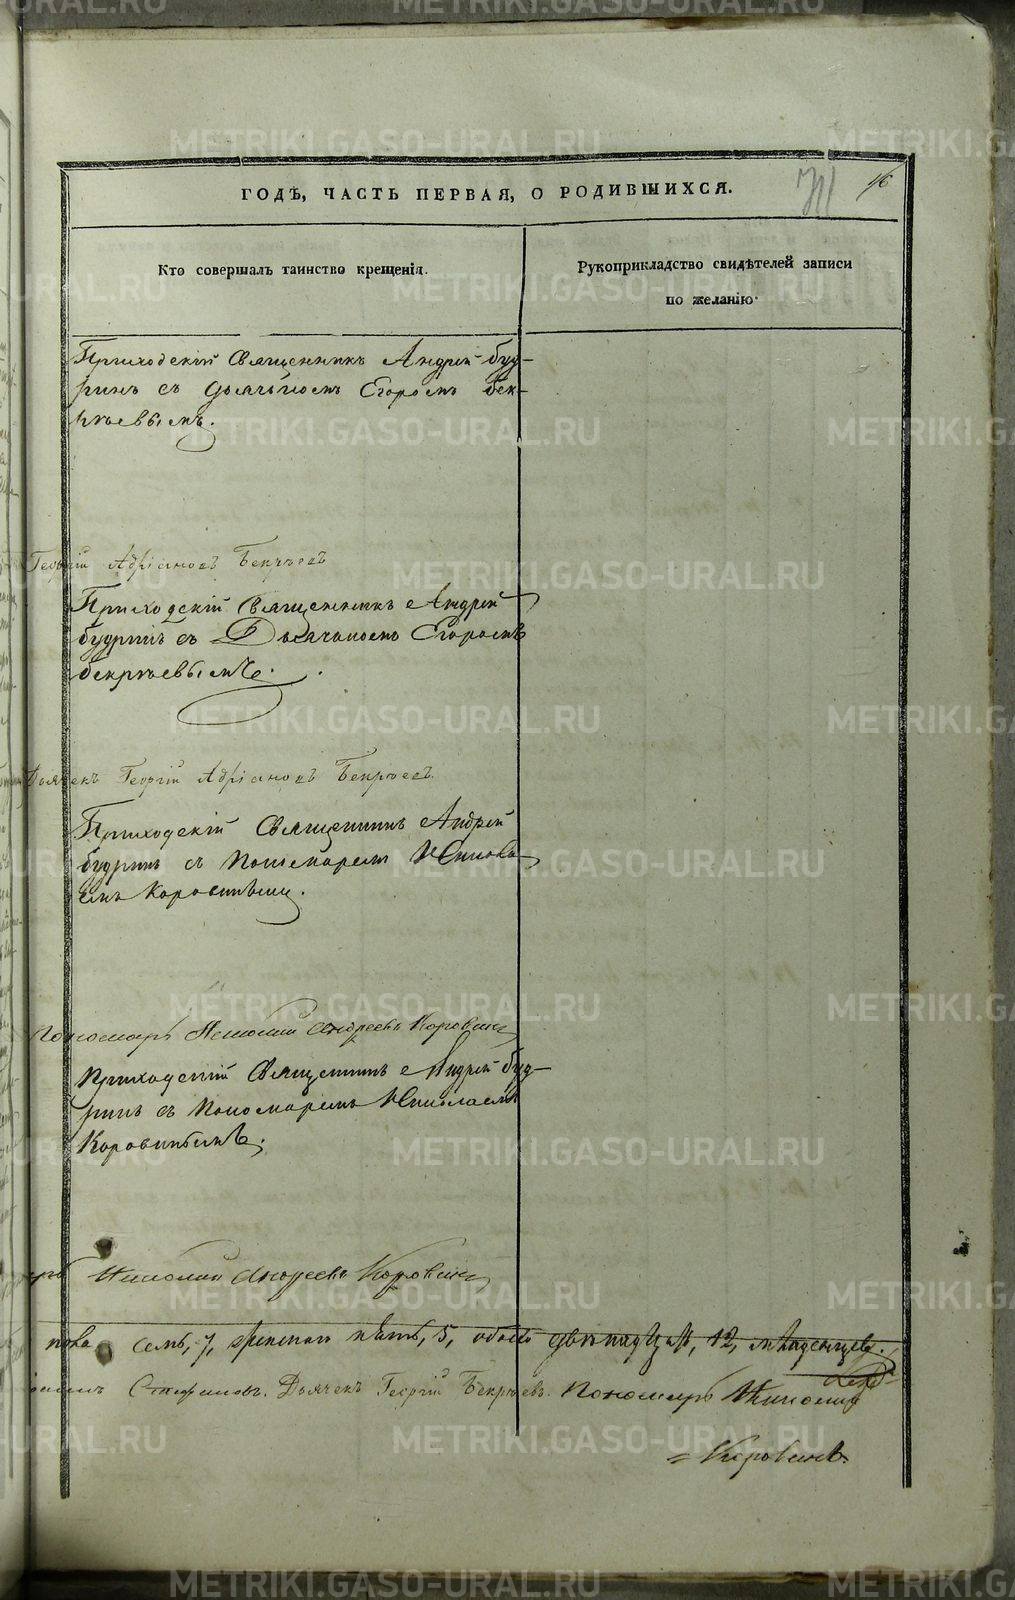 ГОДѢ, ЧАСТЬ ПЕРВАЯ, О РОДИВШИХСЯ.
16
Кто совершалъ таинство крещенія.
Рукоприкладство свидѣтелей записи
по желанію.
Приходскій Священникъ Андрей Буд-
ринъ съ Дьячькомъ Егоромъ Бек-
ръевымъ.
Георгій Адріановъ Бекръевъ
Приходскій Священникъ Андрей
Будринъ съ Дьячькомъ Егоромъ
Бекръевымъ.
Дьячекъ Георгій Адріановъ Бекръевъ.
Приходскій Священникъ Андрей
Будринъ съ Пономаремъ Никола
емъ Коровинымъ.
Пономарь Николай Андреевъ Коровинъ
Приходскій Священникъ Андрей Буд-
ринъ съ Пономаремъ Николаемъ
Коровинымъ.
Николай Андреевъ Коровинъ
пола семь, 7, женскаго пять, 5, обоего двенадцать, 12, младенцевъ.
Стефановъ. Дьячекъ Георгій Бекръевъ. Пономарь Николай
Коровинъ.
METRIKI.GASO-URAL.RU